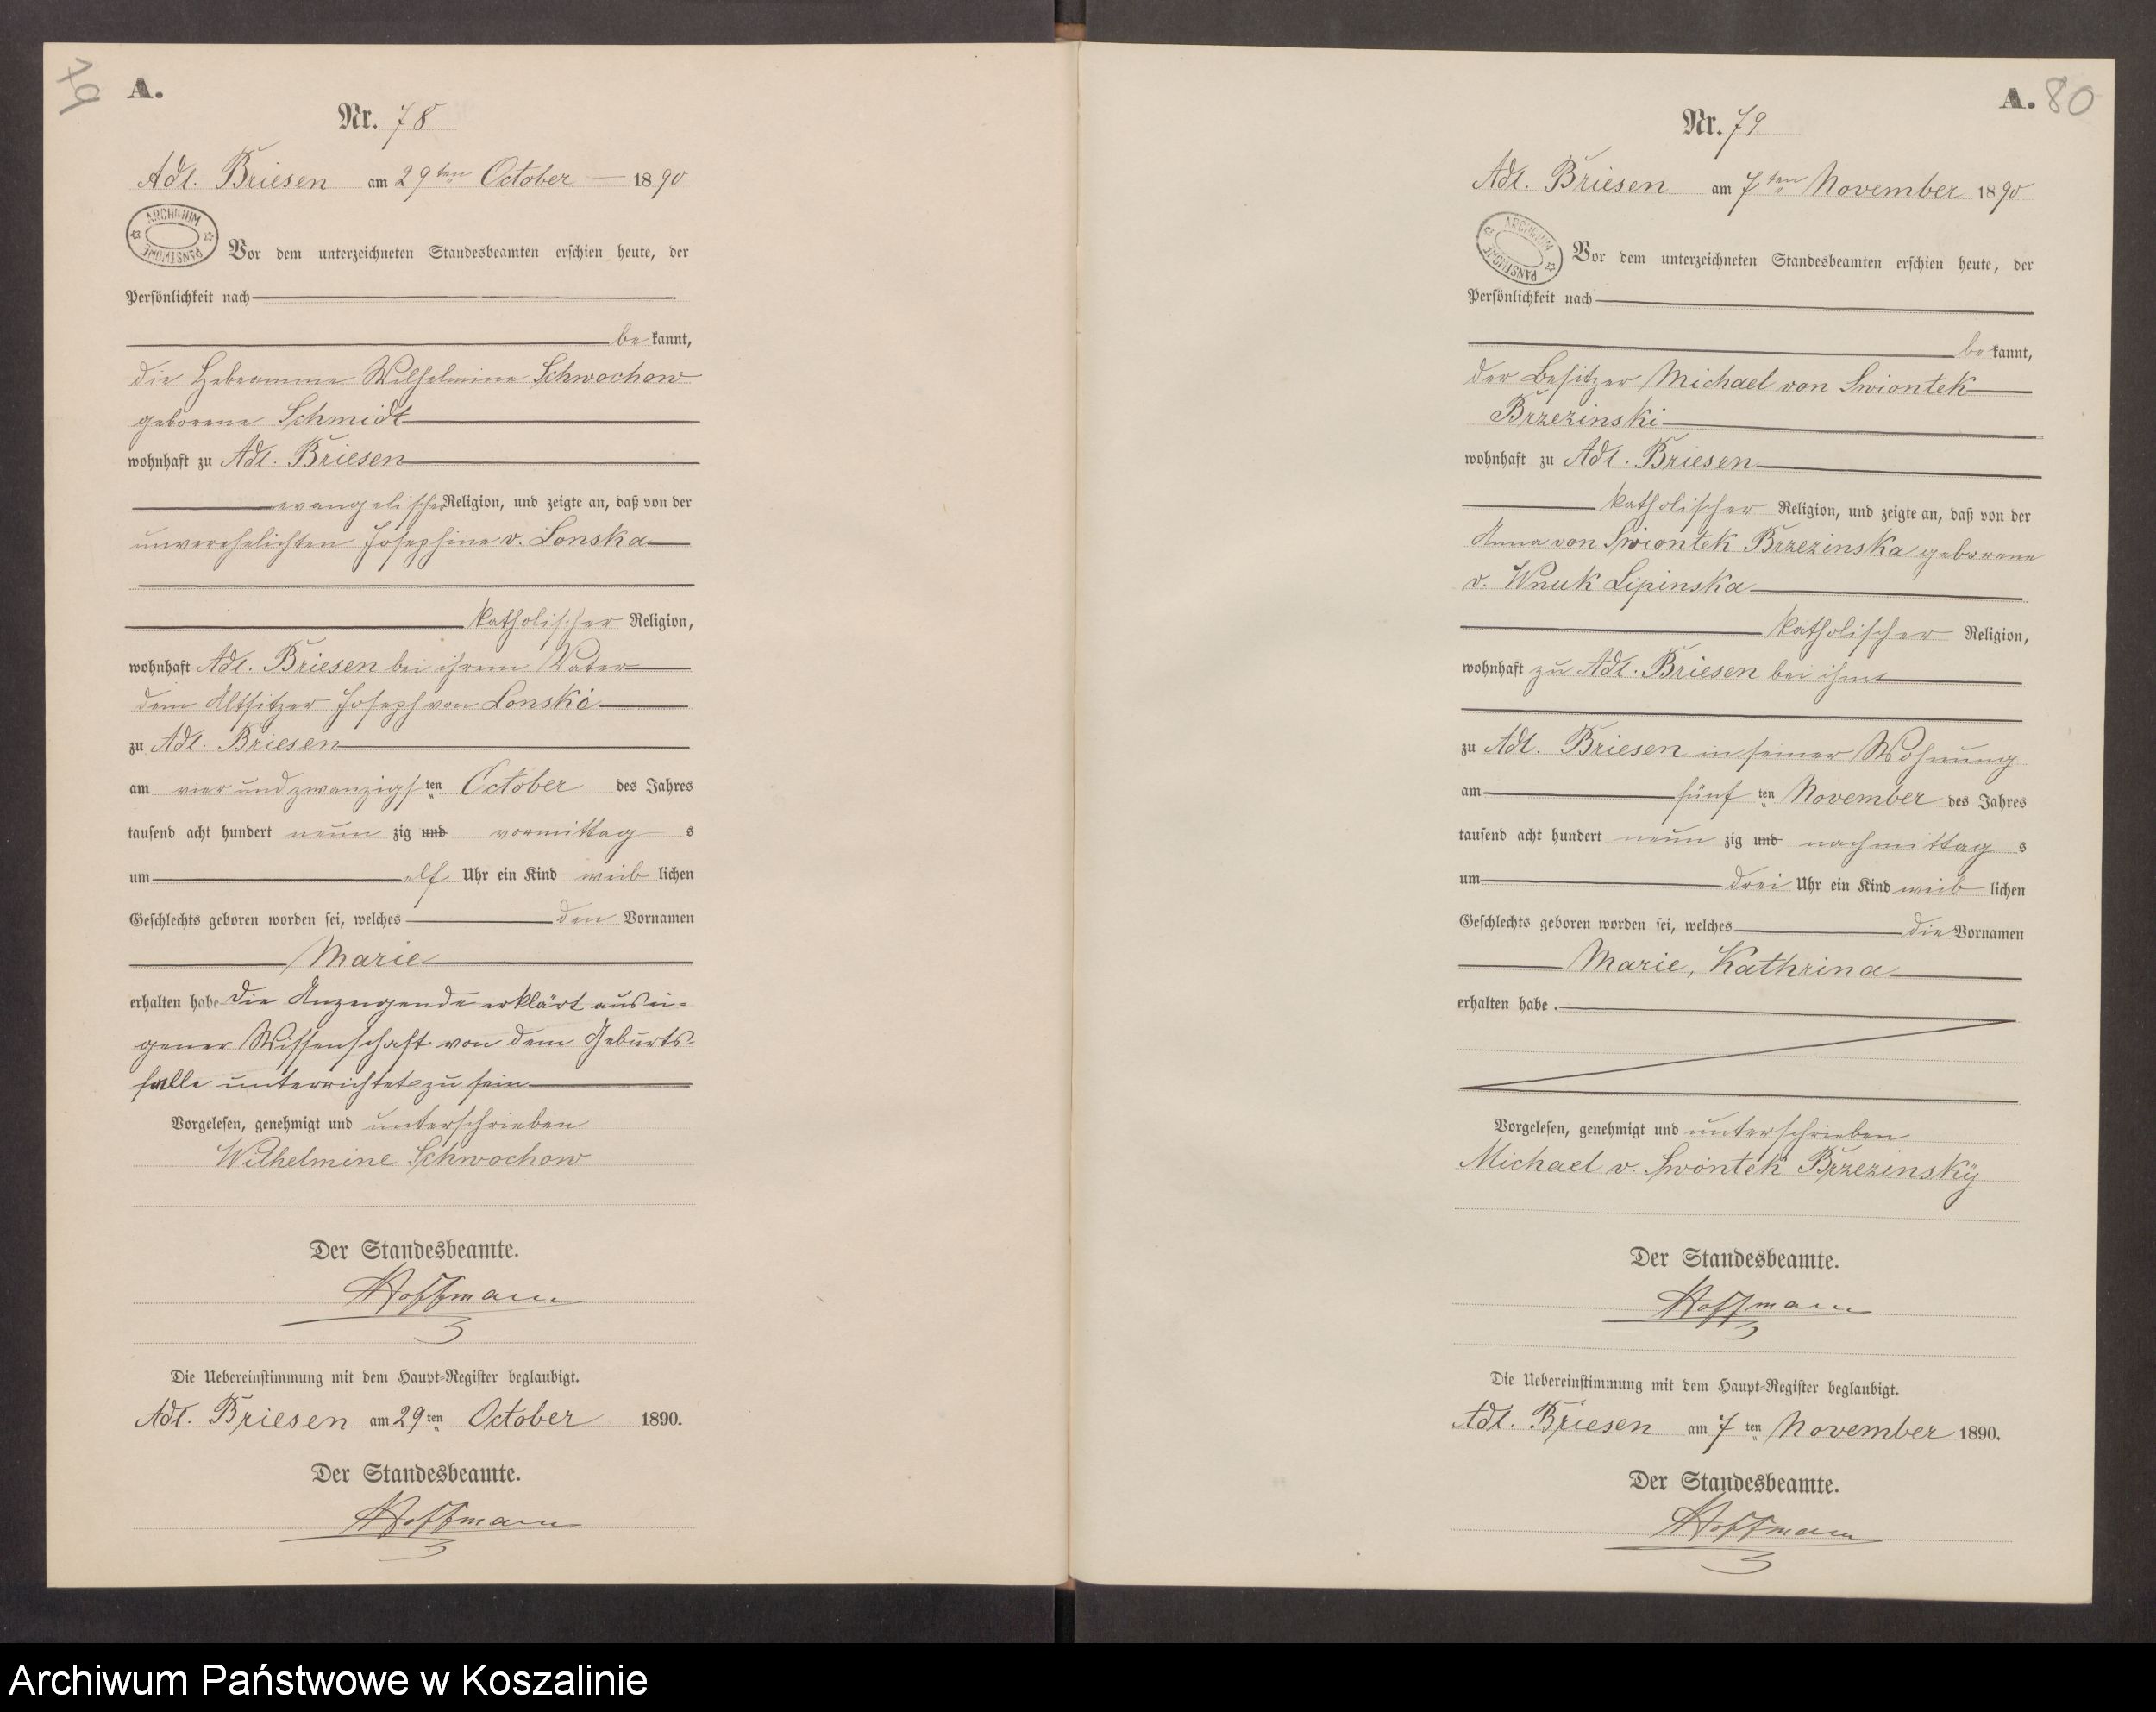 79
A.
Nr. 78
Adl. Briesen am 29ten October 1890
ARCHIWUM PAŃSTWOWE
Vor dem unterzeichneten Standesbeamten erschien heute, der
Persönlichkeit nach
be kannt,
die Hebeamme Wilhelmine Schwochow
geborene Schmidt
wohnhaft zu Adl. Briesen
evangelischer Religion, und zeigte an, daß von der
unverehelichten Josephine v. Lonska
katholischer Religion,
wohnhaft Adl. Briesen bei ihrem Vater
dem Altsitzer Joseph von Lonski
zu Adl. Briesen
am vier und zwanzigsten October des Jahres
tausend acht hundert neun zig und vormittag s
um elf Uhr ein Kind weib lichen
Geschlechts geboren worden sei, welches den Vornamen
Marie
erhalten habe die Anzeigende erklärt aus ei-
gener Wissenschaft von dem Geburts-
falle unterrichtet zu sein
Vorgelesen, genehmigt und unterschrieben
Wilhelmine Schwochow
Der Standesbeamte.
Hoffmann
Die Uebereinstimmung mit dem Haupt-Register beglaubigt.
Adl. Briesen am 29ten October 1890.
Der Standesbeamte.
Hoffmann
A. 80
Nr. 79
Adl. Briesen am 7ten November 1890
ARCHIWUM PAŃSTWOWE
Vor dem unterzeichneten Standesbeamten erschien heute, der
Persönlichkeit nach
be kannt,
der Besitzer Michael von Swiontek
Brzezinski
wohnhaft zu Adl. Briesen
katholischer Religion, und zeigte an, daß von der
Anna von Swiontek Brzezinska geborene
v. Wnuk Lipinska
katholischer Religion,
wohnhaft zu Adl. Briesen bei ihm
zu Adl. Briesen in seiner Wohnung
am fünf ten November des Jahres
tausend acht hundert neun zig und nachmittag s
um drei Uhr ein Kind weib lichen
Geschlechts geboren worden sei, welches die Vornamen
Marie, Kathrina
erhalten habe.
Vorgelesen, genehmigt und unterschrieben
Michael v. Swontek Brzezinsky
Der Standesbeamte.
Hoffmann
Die Uebereinstimmung mit dem Haupt-Register beglaubigt.
Adl. Briesen am 7ten November 1890.
Der Standesbeamte.
Hoffmann
Archiwum Państwowe w Koszalinie